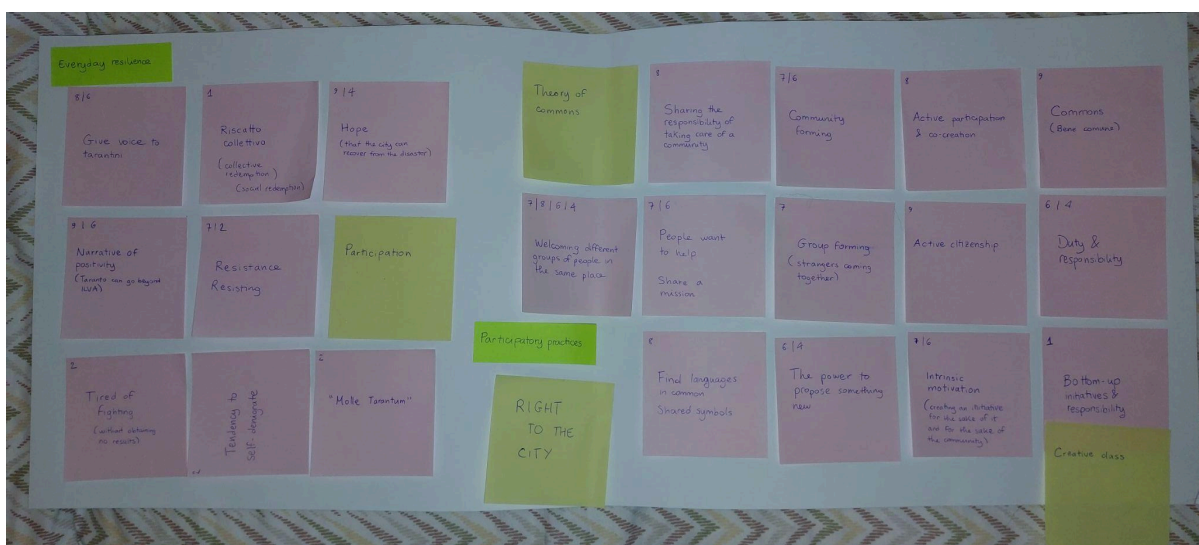 Everyday resilience
8/6
Give voice to
tarantini
1
Riscatto
collettivo
(collective
redemption)
(social redemption)
9/4
Hope
(that the city can
recover from the disaster)
9/6
Narrative of
positivity
(Taranto can go beyond
ILVA)
7/2
Resistance
Resisting
Participation
2
Tired of
fighting
(without obtaining
no results)
Tendency to
self-denigrate
2
"Molle Tarantum"
Theory of
commons
8
Sharing the
responsibility of
taking care of a
community
7/6
Community
forming
1
Active participation
& co-creation
9
Commons
(Bene comune)
7/8/6/4
Welcoming different
groups of people in
the same place
7/6
People want
to help
Share a
mission
7
Group forming
(strangers coming
together)
9
Active citizenship
6/4
Duty &
responsibility
Participatory practices
RIGHT
TO THE
CITY
8
Find languages
in common
Shared symbols
6/4
The power to
propose something
new
7/6
Intrinsic
motivation
(creating an initiative
for the sake of it
and for the sake of
the community)
1
Bottom-up
initiatives &
responsibility
Creative class